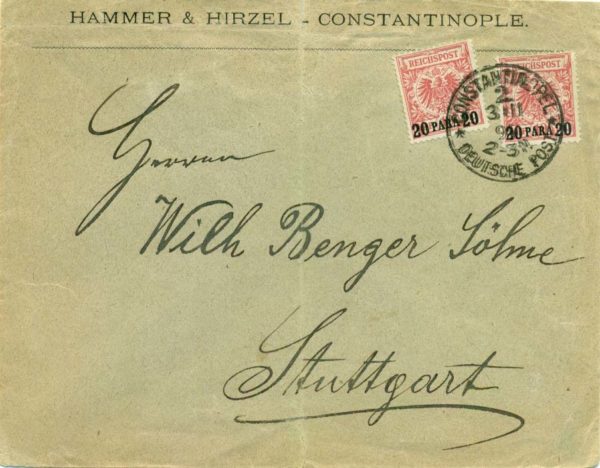 HAMMER & HIRZEL - CONSTANTINOPLE.
REICHSPOST
20 PARA 20
REICHSPOST
20 PARA 20
CONSTANTINOPEL
2
2-3N.
* DEUTSCHE POST *
Herren
Wilh Benger Söhne
Stuttgart